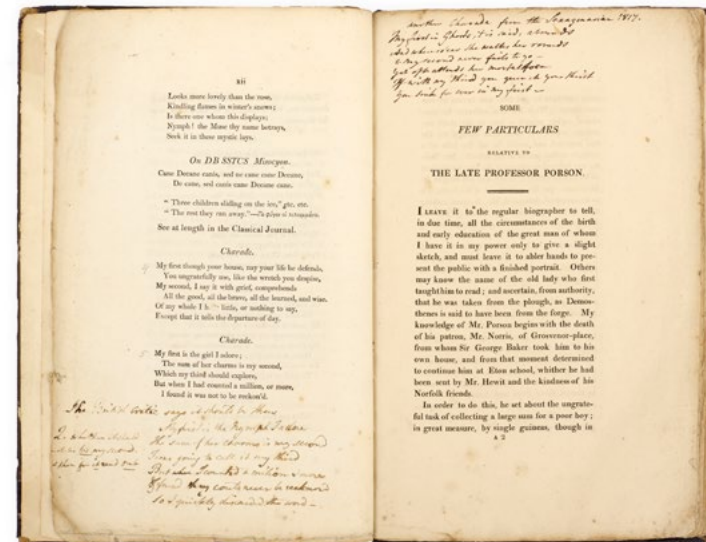 xii
Looks more lovely than the rose,
Kindling flames in winter's snows;
Is there one whom this displays;
Nymph! the Muse thy name betrays,
Seek it in these mystic lays.
On DB SSTUS Misocyon.
Cane Decane canis, sed ne cane cane Decane,
De cane, sed canis cane Decane cane.
" Three children sliding on the ice," &c. etc.
" The rest they ran away."
See at length in the Classical Journal.
Charade.
My first though your house, nay your life he defends,
You ungratefully use, like the wretch you despise,
My second, I say it with grief, comprehends
All the good, all the brave, all the learned, and wise.
Of my whole I little, or nothing to say,
Except that it tells the departure of day.
Charade.
My first is the girl I adore;
The sum of her charms is my second,
Which my third should explore,
But when I had counted a million, or more,
I found it was not to be reckon'd.
The critic says it should be thus
My first is the Nymph I adore
The sum of her charms is my second
I was going to call it my third
But when I counted a million & more
I found they could never be reckoned
So I quickly the word
another Charade from the 1817.
My first in Ghosts, it is said, abounds
And wheresoever she walks her rounds
My second never fails to go
Yet oft attends her mortal
If with my third you quench your thirst
You sink for ever in my first
SOME
FEW PARTICULARS
RELATIVE TO
THE LATE PROFESSOR PORSON.
I LEAVE it to the regular biographer to tell,
in due time, all the circumstances of the birth
and early education of the great man of whom
I have it in my power only to give a slight
sketch, and must leave it to abler hands to pre-
sent the public with a finished portrait. Others
may know the name of the old lady who first
taught him to read; and ascertain, from authority,
that he was taken from the plough, as Demos-
thenes is said to have been from the forge. My
knowledge of Mr. Porson begins with the death
of his patron, Mr. Norris, of Grosvenor-place,
from whom Sir George Baker took him to his
own house, and from that moment determined
to continue him at Eton school, whither he had
been sent by Mr. Hewit and the kindness of his
Norfolk friends.
In order to do this, he set about the ungrate-
ful task of collecting a large sum for a poor boy;
in great measure, by single guineas, though in
A 2